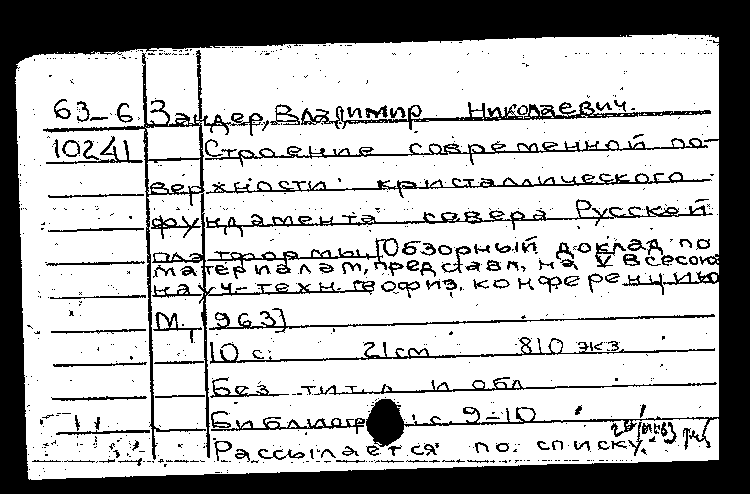 63-6 Зандер, Владимир Николаевич.
10241 Строение современной по-
верхности кристаллического
фундамента севера Русской
платформы. [Обзорный доклад по
материалам, представл. на V Всесоюз.
науч-техн. геофиз. конференцию
М., 1963]
10 с. 21см 810 экз.
Без тит. л и обл
Библиогр с. 9-10
Рассылается по списку.